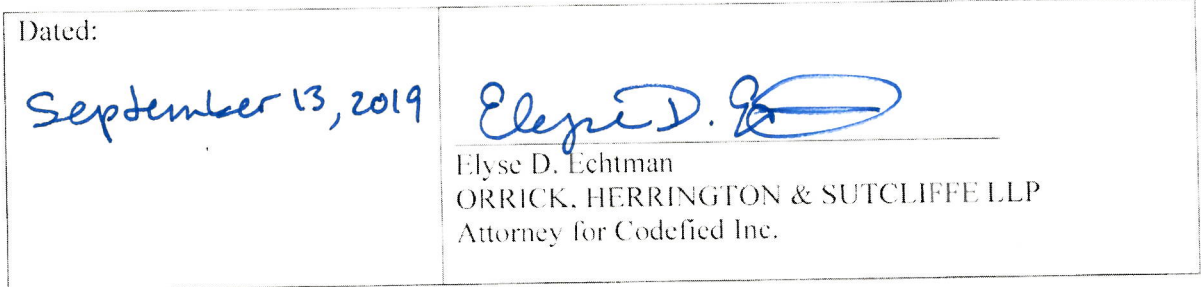 Dated:
September 13, 2019
Elyse D. E
Elyse D. Echtman
ORRICK, HERRINGTON & SUTCLIFFE LLP
Attorney for Codefied Inc.